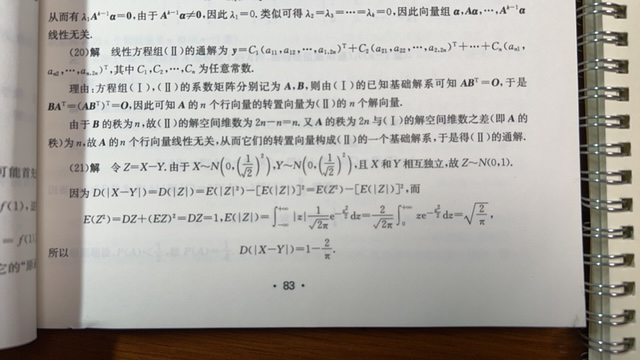 从而有 λ₁Aᵏ⁻¹α=0,由于 Aᵏ⁻¹α≠0,因此 λ₁=0. 类似可得 λ₂=λ₃=⋯=λₖ=0,因此向量组 α,Aα,⋯,Aᵏ⁻¹α
线性无关.
(20)解 线性方程组(Ⅱ)的通解为 y=C₁(a₁₁,a₁₂,⋯,a₁,₂ₙ)ᵀ+C₂(a₂₁,a₂₂,⋯,a₂,₂ₙ)ᵀ+⋯+Cₙ(aₙ₁,
aₙ₂,⋯,aₙ,₂ₙ)ᵀ,其中 C₁,C₂,⋯,Cₙ 为任意常数.
理由:方程组(Ⅰ),(Ⅱ)的系数矩阵分别记为 A,B,则由(Ⅰ)的已知基础解系可知 ABᵀ=O,于是
BAᵀ=(ABᵀ)ᵀ=O,因此可知 A 的 n 个行向量的转置向量为(Ⅱ)的 n 个解向量.
由于 B 的秩为 n,故(Ⅱ)的解空间维数为 2n−n=n,又 A 的秩为 2n 与(Ⅰ)的解空间维数之差(即 A 的
秩)为 n,故 A 的 n 个行向量线性无关,从而它们的转置向量构成(Ⅱ)的一个基础解系,于是得(Ⅱ)的通解.
(21)解 令 Z=X−Y. 由于 X~N(0,(1/√2)²),Y~N(0,(1/√2)²),且 X 和 Y 相互独立,故 Z~N(0,1).
因为 D(|X−Y|)=D(|Z|)=E(|Z|²)−[E(|Z|)]²=E(Z²)−[E(|Z|)]²,而
E(Z²)=DZ+(EZ)²=DZ=1,E(|Z|)=∫₋∞⁺∞ |z| 1/√2π e^(−z²/2) dz = 2/√2π ∫₀⁺∞ ze^(−z²/2) dz = √(2/π),
所以 D(|X−Y|)=1−2/π.
· 83 ·
可能首
f(1),
= f(1)
它的“